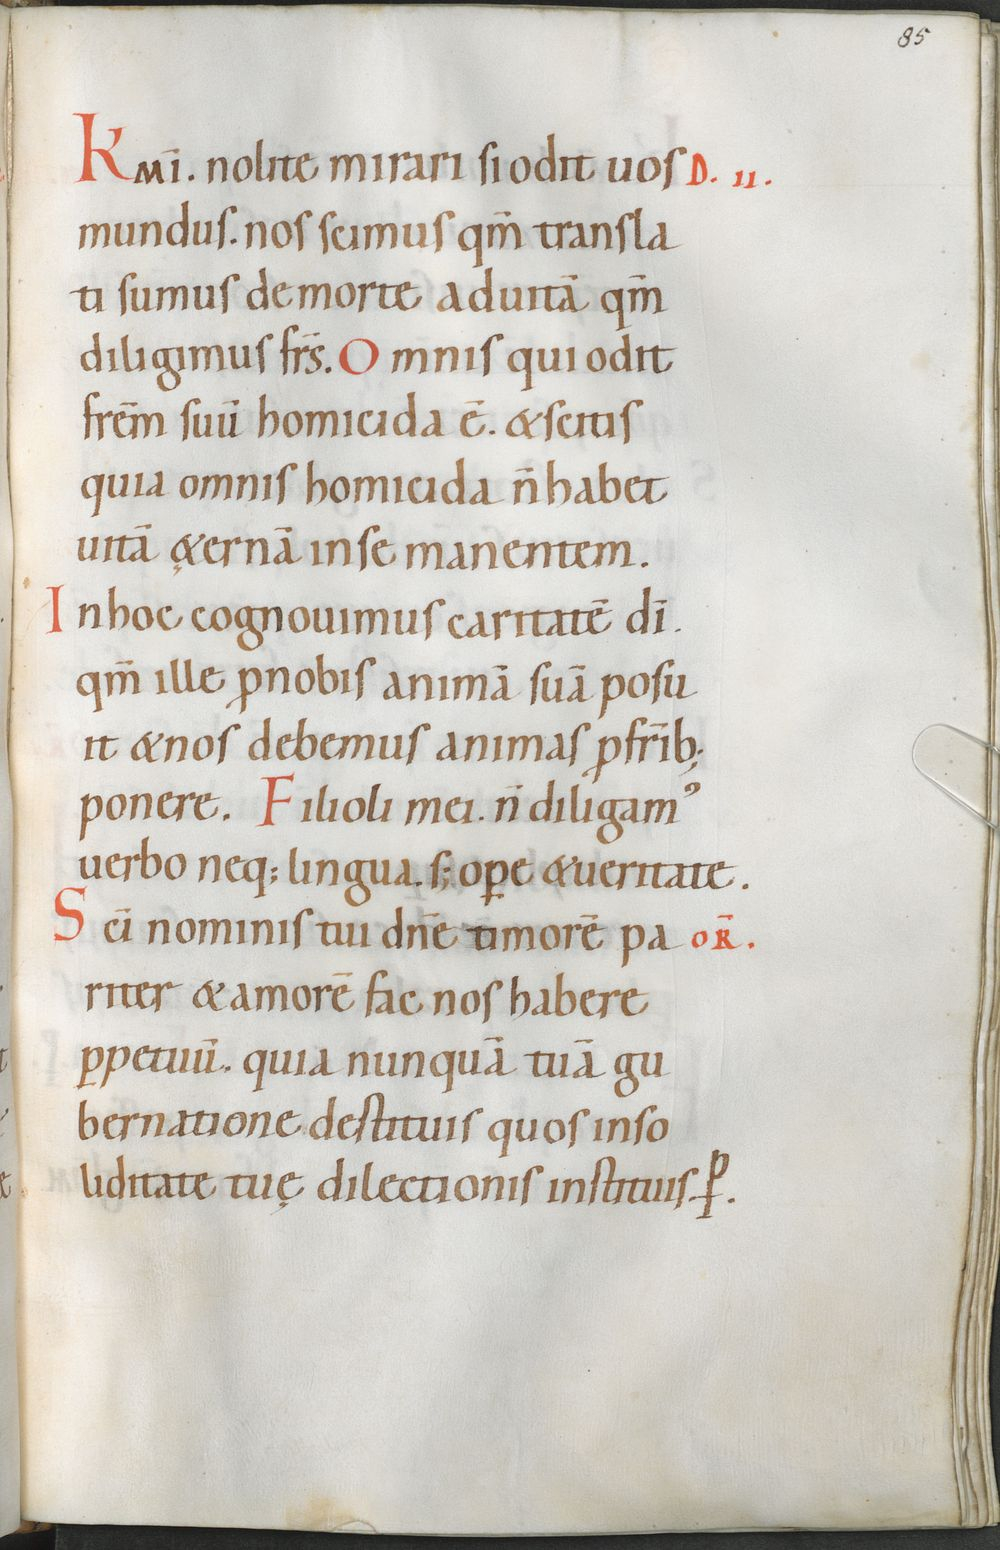 85
Km̄i. nolite mirari si odit uos D. II.
mundus. nos scimus qm̄ transla
ti sumus de morte ad uitā qm̄
diligimus fr̄s. Omnis qui odit
frēm suū homicida ē. & scitis
quia omnis homicida n̄ habet
uitā ę&ernā in se manentem.
In hoc cognouimus caritatē dī.
qm̄ ille ꝓ nobis animā suā posu
it & nos debemus animas ꝓ fr̄ib;
ponere. Filioli mei. n̄ diligamꝰ
uerbo neq; lingua. s; oꝑe & ueritate.
Scī nominis tui dn̄e timorē pa OR̄.
riter & amorē fac nos habere
ꝑpetuū. quia nunquā tuā gu
bernatione destituis quos in so
liditate tuę dilectionis instituis. ꝑ.